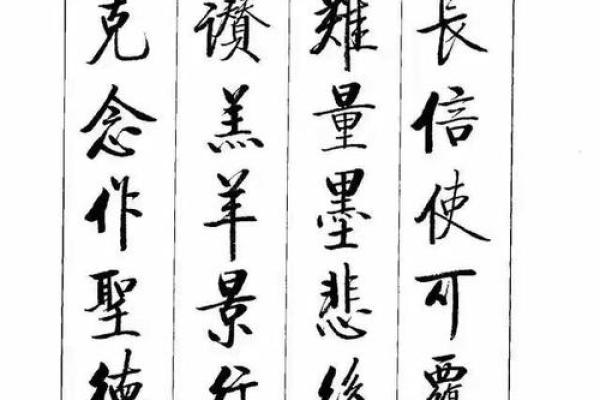 長信使可覆
難量墨悲
讚羔羊景行
克念作聖德